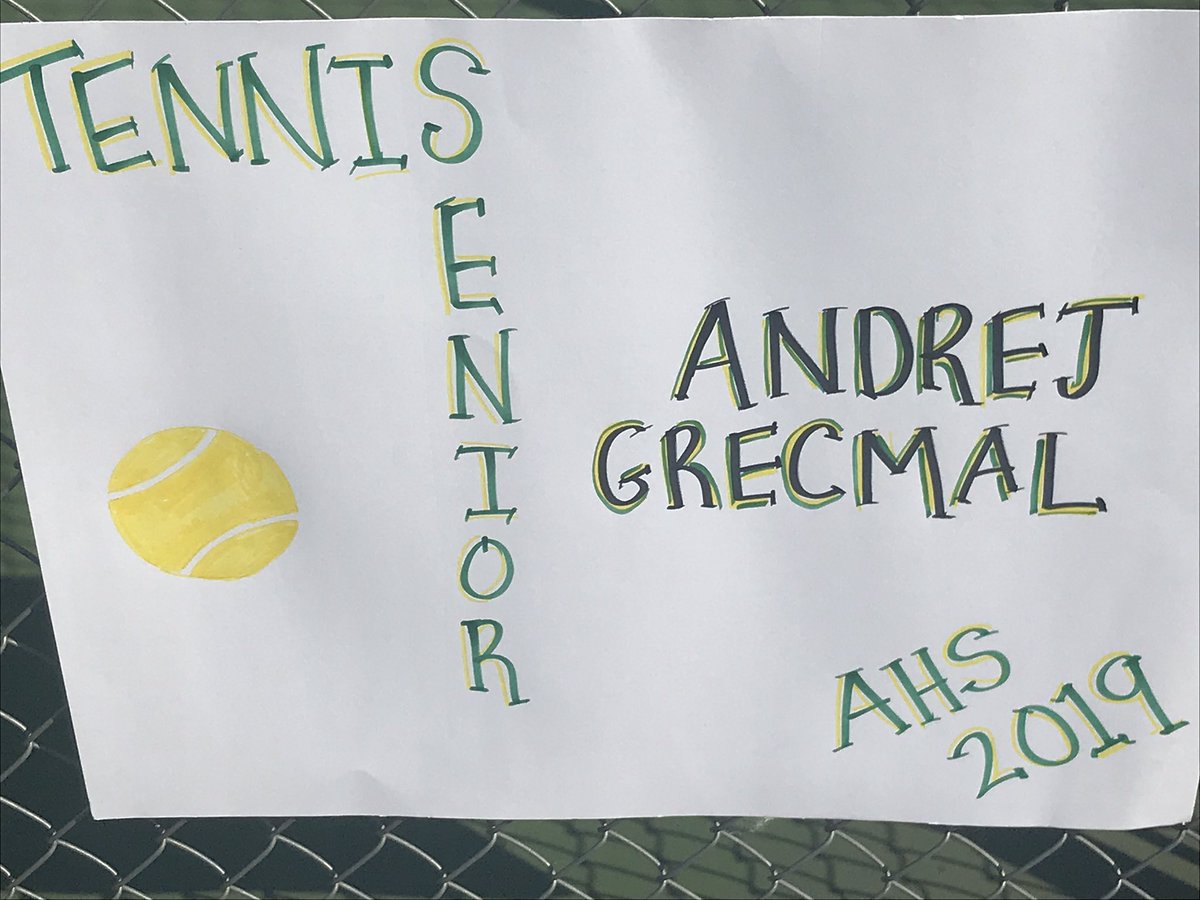 TENNIS
SENIOR
ANDREJ
GRECMAL
AHS
2019